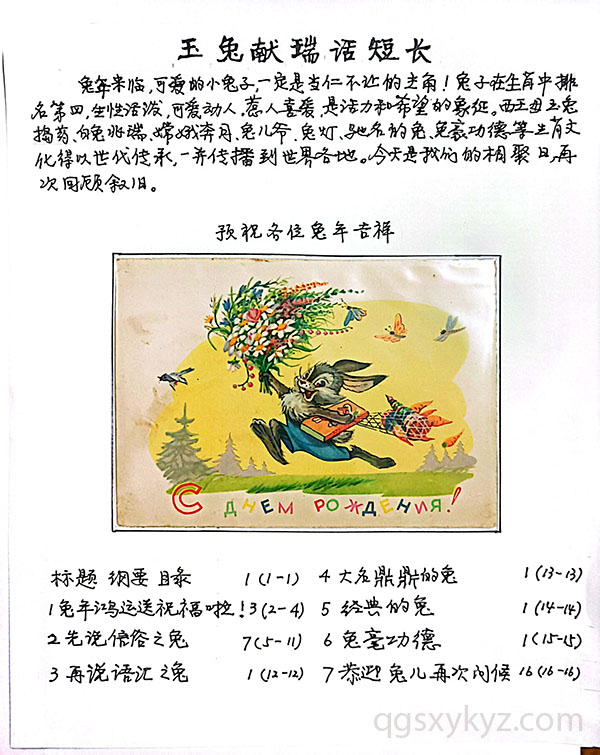 玉兔献瑞话短长
兔年来临,可爱的小兔子,一定是当仁不让的主角!兔子在生肖中排
名第四,生性活泼,可爱动人,惹人喜爱,是活力和希望的象征。西王母玉兔
捣药、白兔兆瑞、嫦娥奔月、兔儿爷、兔灯、驰名的兔、兔毫功德等生肖文
化得以世代传承,一并传播到世界各地。今天是我们的相聚日,再
次回顾叙旧。
预祝各位兔年吉祥
С ДНЕМ РОЖДЕНИЯ!
标题 纲要 目录 1(1-1) 4 大名鼎鼎的兔 1(13-13)
1兔年鸿运送祝福啦!3(2-4) 5 经典的兔 1(14-14)
2先说信俗之兔 7(5-11) 6 兔毫功德 1(15-15)
3再说语汇之兔 1(12-12) 7恭迎兔儿再次问候 16(16-16)
qgsxykyz.com